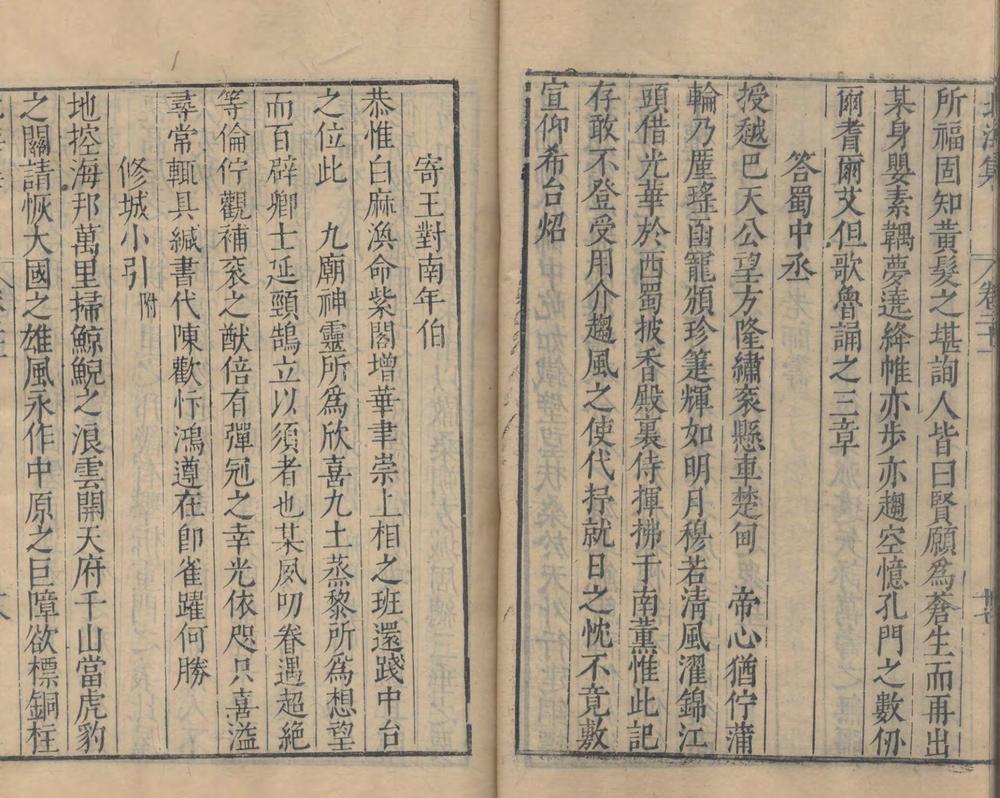 北海集 卷三十一
所福固知黃髮之堪詢人皆曰賢願為蒼生而再出
某身嬰素韝夢遶絳帷亦步亦趨空憶孔門之數仞
爾耆爾艾但歌魯誦之三章
答蜀中丞
授鉞巴天公望方隆繡衮懸車楚甸 帝心猶佇蒲
輪乃塵瑤函寵頒珍箑輝如明月穆若淸風濯錦江
頭借光華於西蜀披香殿裏侍揮拂于南薰惟此記
存敢不登受用介趨風之使代抒就日之忱不竟敷
宣仰希台炤
寄王對南年伯
恭惟白麻渙命紫閣增華聿崇上相之班還踐中台
之位此 九廟神靈所爲欣喜九土蒸黎所爲想望
而百辟卿士延頸鵠立以須者也某夙叨眷遇超絕
等倫佇觀補衮之猷倍有彈冠之幸光依咫只喜溢
尋常輒具緘書代陳歡忭鴻遵在卽雀躍何勝
修城小引 附
地控海邦萬里掃鯨鯢之浪雲開天府千山當虎豹
之關請恢大國之雄風永作中原之巨障欲標銅柱